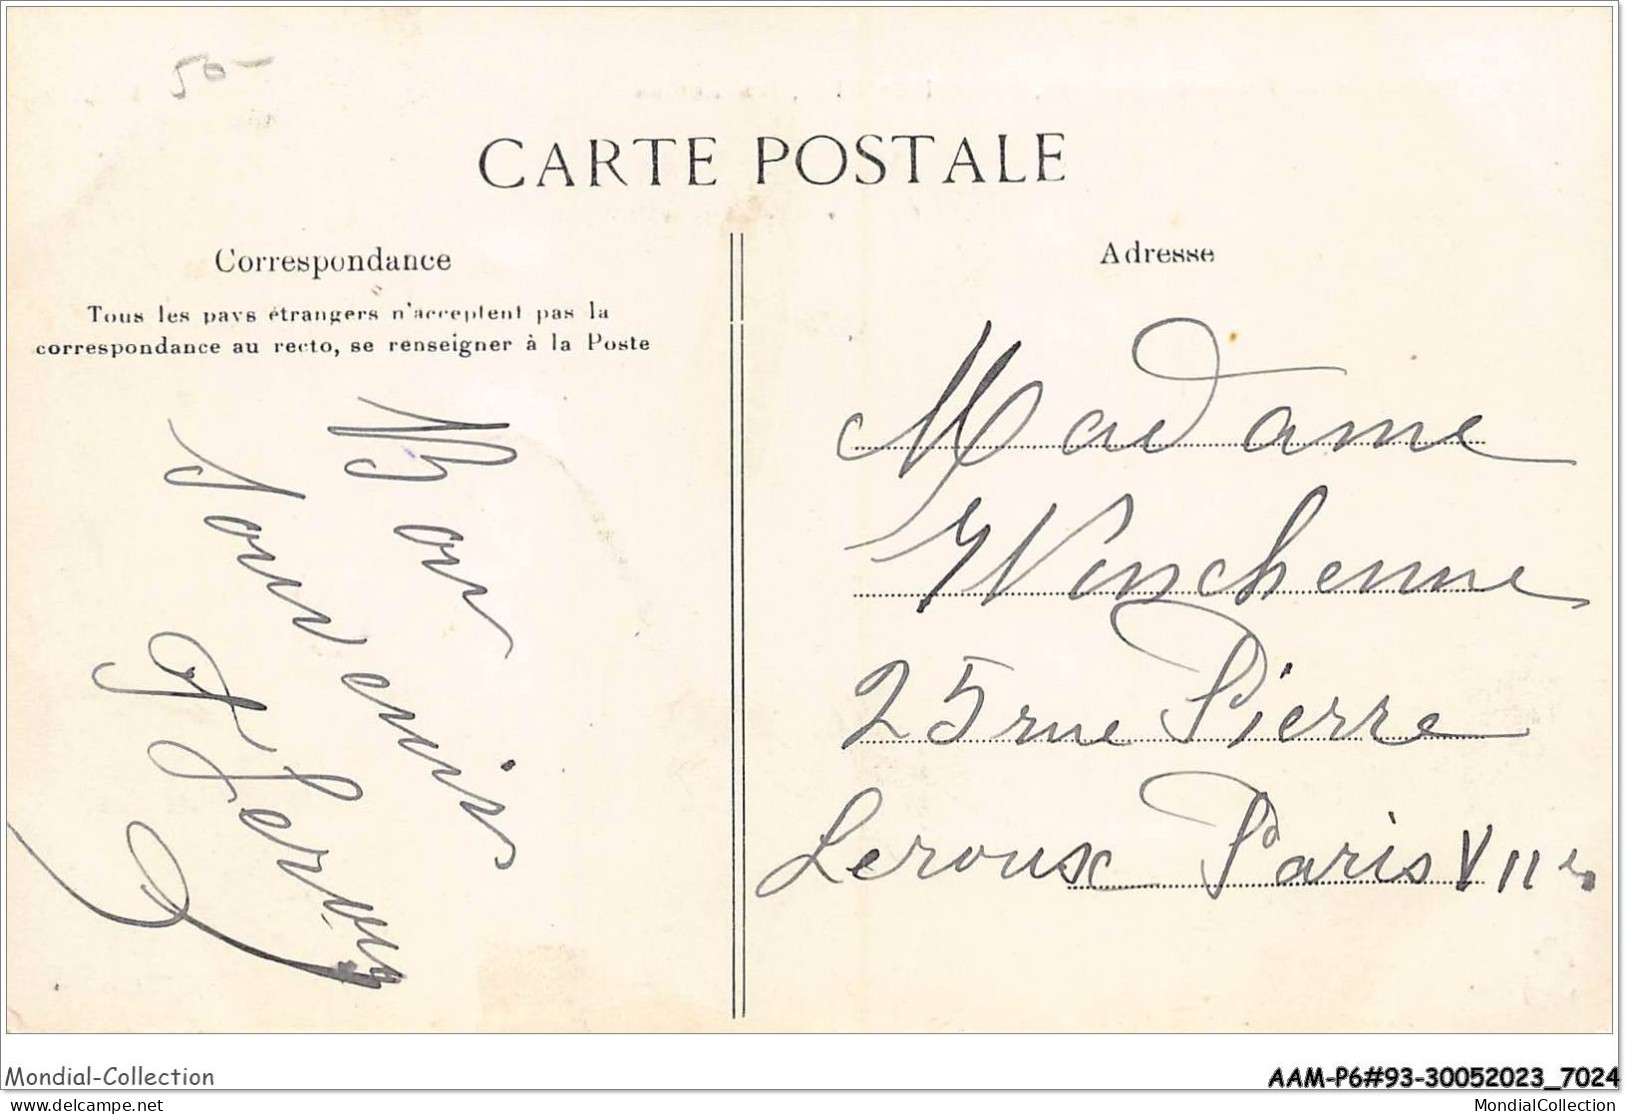 50-
CARTE POSTALE
Correspondance
Tous les pays étrangers n'acceptent pas la
correspondance au recto, se renseigner à la Poste
Bon
Souvenir
Adresse
Madame
Vinchenne
25 rue Pierre
Leroux Paris VII e
Mondial-Collection
AAM-P6#93-30052023_7024
www.delcampe.net
MondialCollection